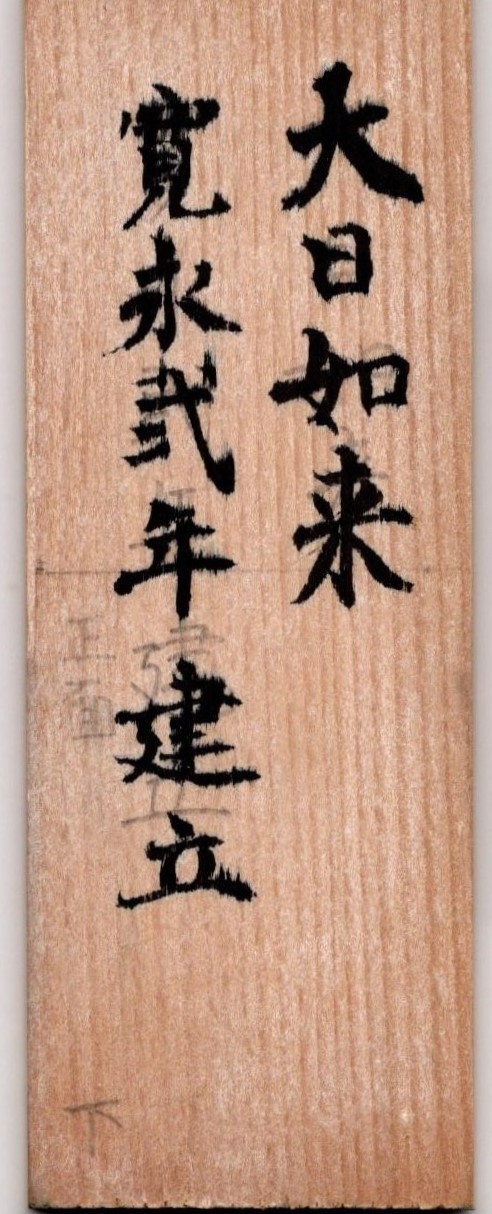 大日如来
寛永弐年建立
正面
建立
下